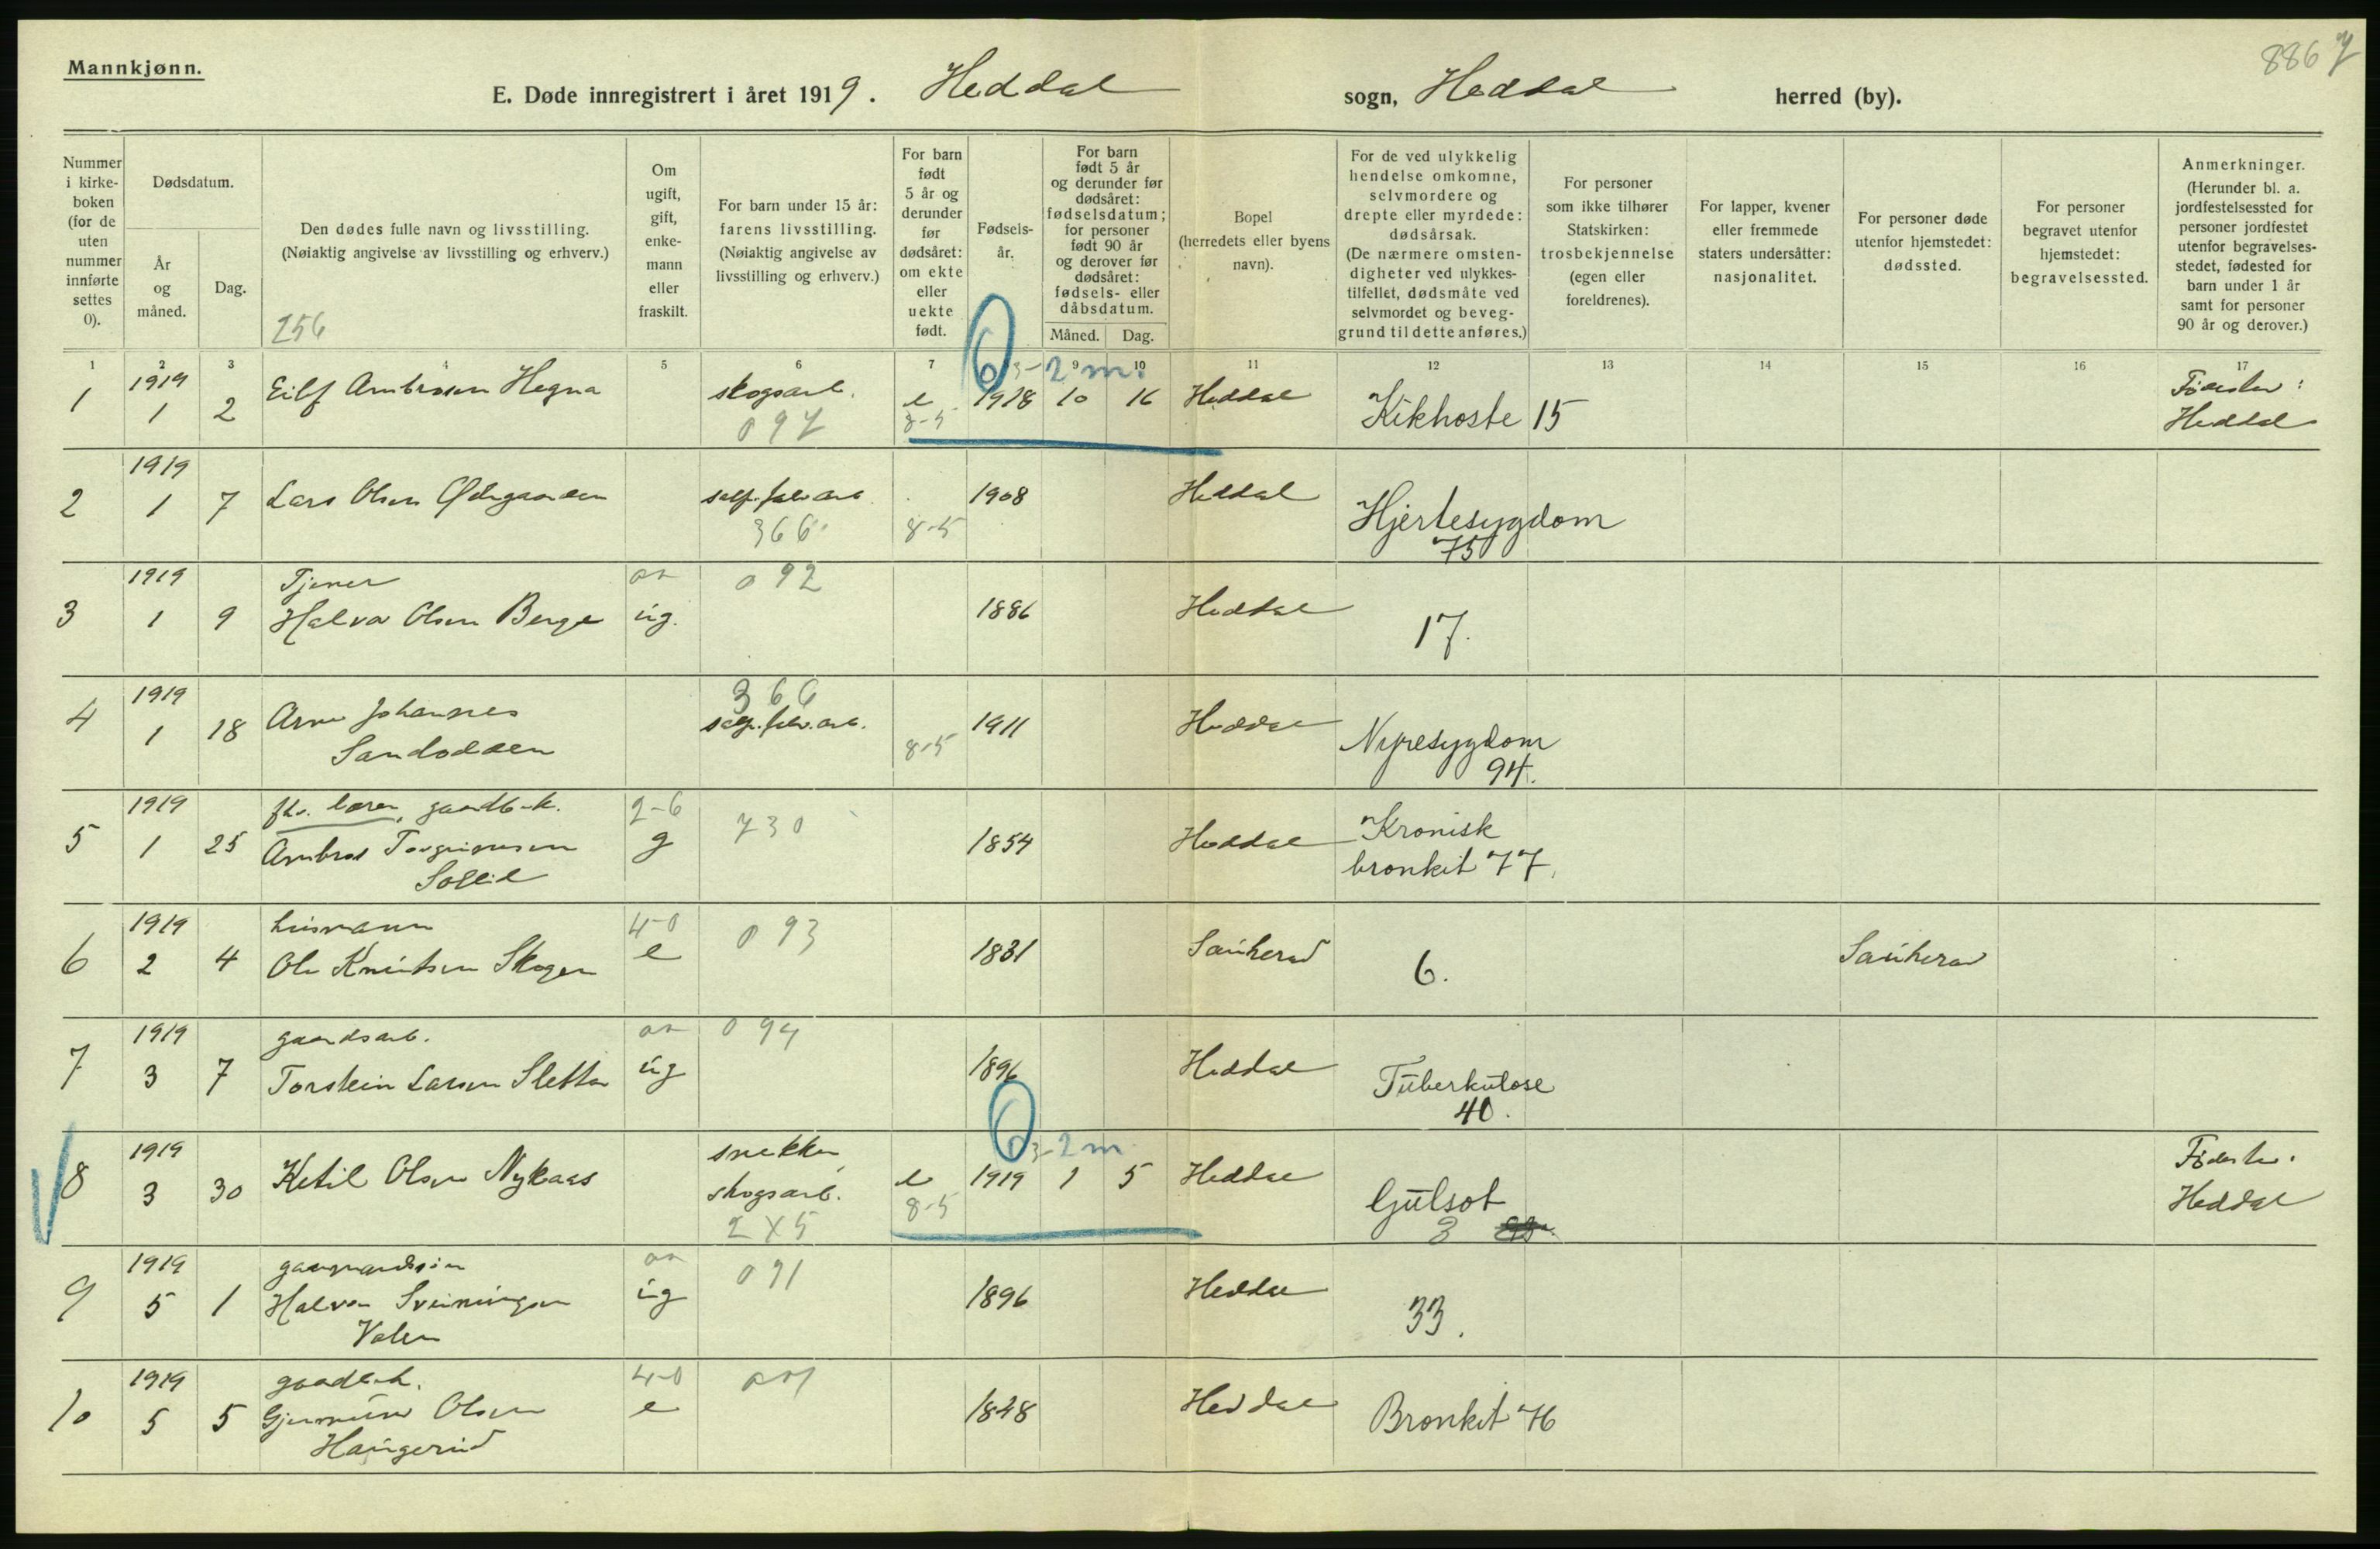 Mannkjønn.
8867
E. Døde innregistrert i året 1919. Heddal sogn, Heddal herred (by).
Nummer i kirke-boken (for de uten nummer innførte settes 0).
Dødsdatum.
År og måned.
Dag.
Den dødes fulle navn og livsstilling.
(Nøiaktig angivelse av livsstilling og erhverv.)
256
Om ugift, gift, enke-mann eller fraskilt.
For barn under 15 år: farens livsstilling.
(Nøiaktig angivelse av livsstilling og erhverv.)
For barn født 5 år og derunder før dødsåret: om ekte eller uekte født.
Fødsels-år.
For barn født 5 år og derunder før dødsåret: fødselsdatum; for personer født 90 år og derover før dødsåret: fødsels- eller dåbsdatum.
Måned. Dag.
Bopel (herredets eller byens navn).
For de ved ulykkelig hendelse omkomne, selvmordere og drepte eller myrdede: dødsårsak.
(De nærmere omsten-digheter ved ulykkes-tilfellet, dødsmåte ved selvmordet og beveg-grund til dette anføres.)
For personer som ikke tilhører Statskirken: trosbekjennelse (egen eller foreldrenes).
For lapper, kvener eller fremmede staters undersåtter: nasjonalitet.
For personer døde utenfor hjemstedet: dødssted.
For personer begravet utenfor hjemstedet: begravelsessted.
Anmerkninger.
(Herunder bl. a. jordfestelsessted for personer jordfestet utenfor begravelses-stedet, fødested for barn under 1 år samt for personer 90 år og derover.)
1 2 3 4 5 6 7 8 9 10 11 12 13 14 15 16 17
6 3-2 m.
1 1919 1 2 Eilf Ambrosen Hegna skogsarb. 097 e 8-5 1918 10 16 Heddal Kikhoste 15 Fødested: Heddal
2 1919 1 7 Lars Olsen Ødegaarden 366 8-5 1908 Heddal Hjertesygdom 75
3 1919 1 9 Tjener Halvor Olsen Berge ug. 092 1886 Heddal 17.
4 1919 1 18 Arne Johannes Sandodden 366 8-5 1911 Heddal Nyresygdom 94.
5 1919 1 25 fhv. lærer, gaardbr. Ambros Torgrimsen Sollid 2-6 g 730 1854 Heddal Kronisk bronkit 77.
6 1919 2 4 husmann Ole Knutsen Skogen 4-0 e 093 1831 Sauherad 6. Sauherad
7 1919 3 7 gaardsarb. Torstein Larsen Sletta ug 094 1896 Heddal Tuberkulose 40.
6 3-2 m
8 1919 3 30 Ketil Olsen Nykaas snekker, skogsarb. 2X5 e 8-5 1919 1 5 Heddal Gulsot 3 Fødested: Heddal
9 1919 5 1 gaardmandssøn Halvor Sveinungsen Valen ug 091 1896 Heddal 33.
10 1919 5 5 Gjermund Olsen Haugerud 4-0 e 1848 Heddal Bronkit 76